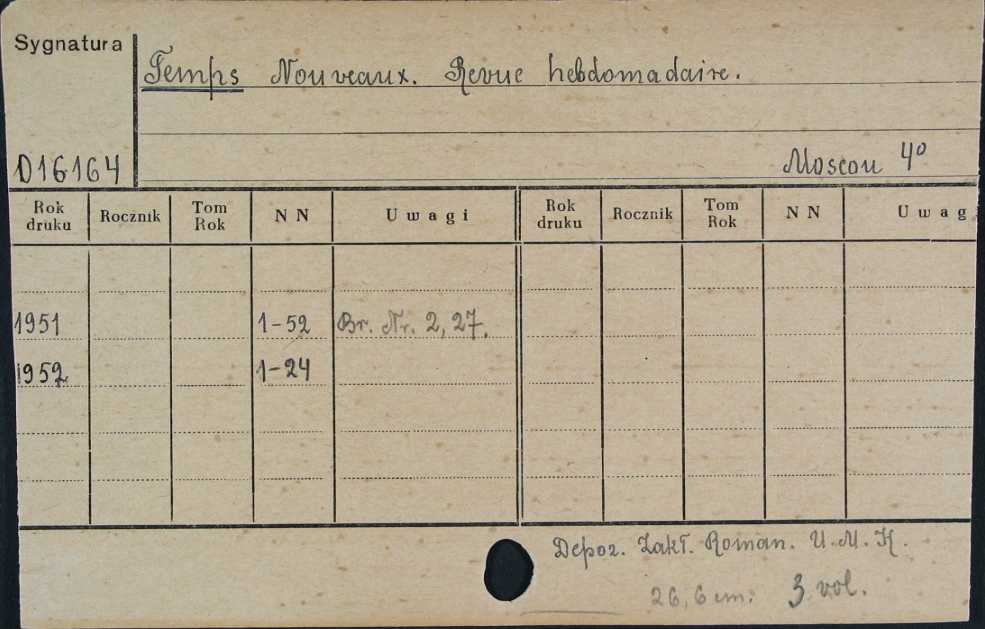 Sygnatura
Temps Nouveaux. Revue hebdomadaire.
D16164
Moscou 4º
Rok druku Rocznik Tom Rok NN Uwagi Rok druku Rocznik Tom Rok NN Uwag
1951 1-52 Br. Nr. 2, 27.
1952 1-24
Depoz. Zakł. Roman. U.M.K.
26,6 cm. 3 vol.